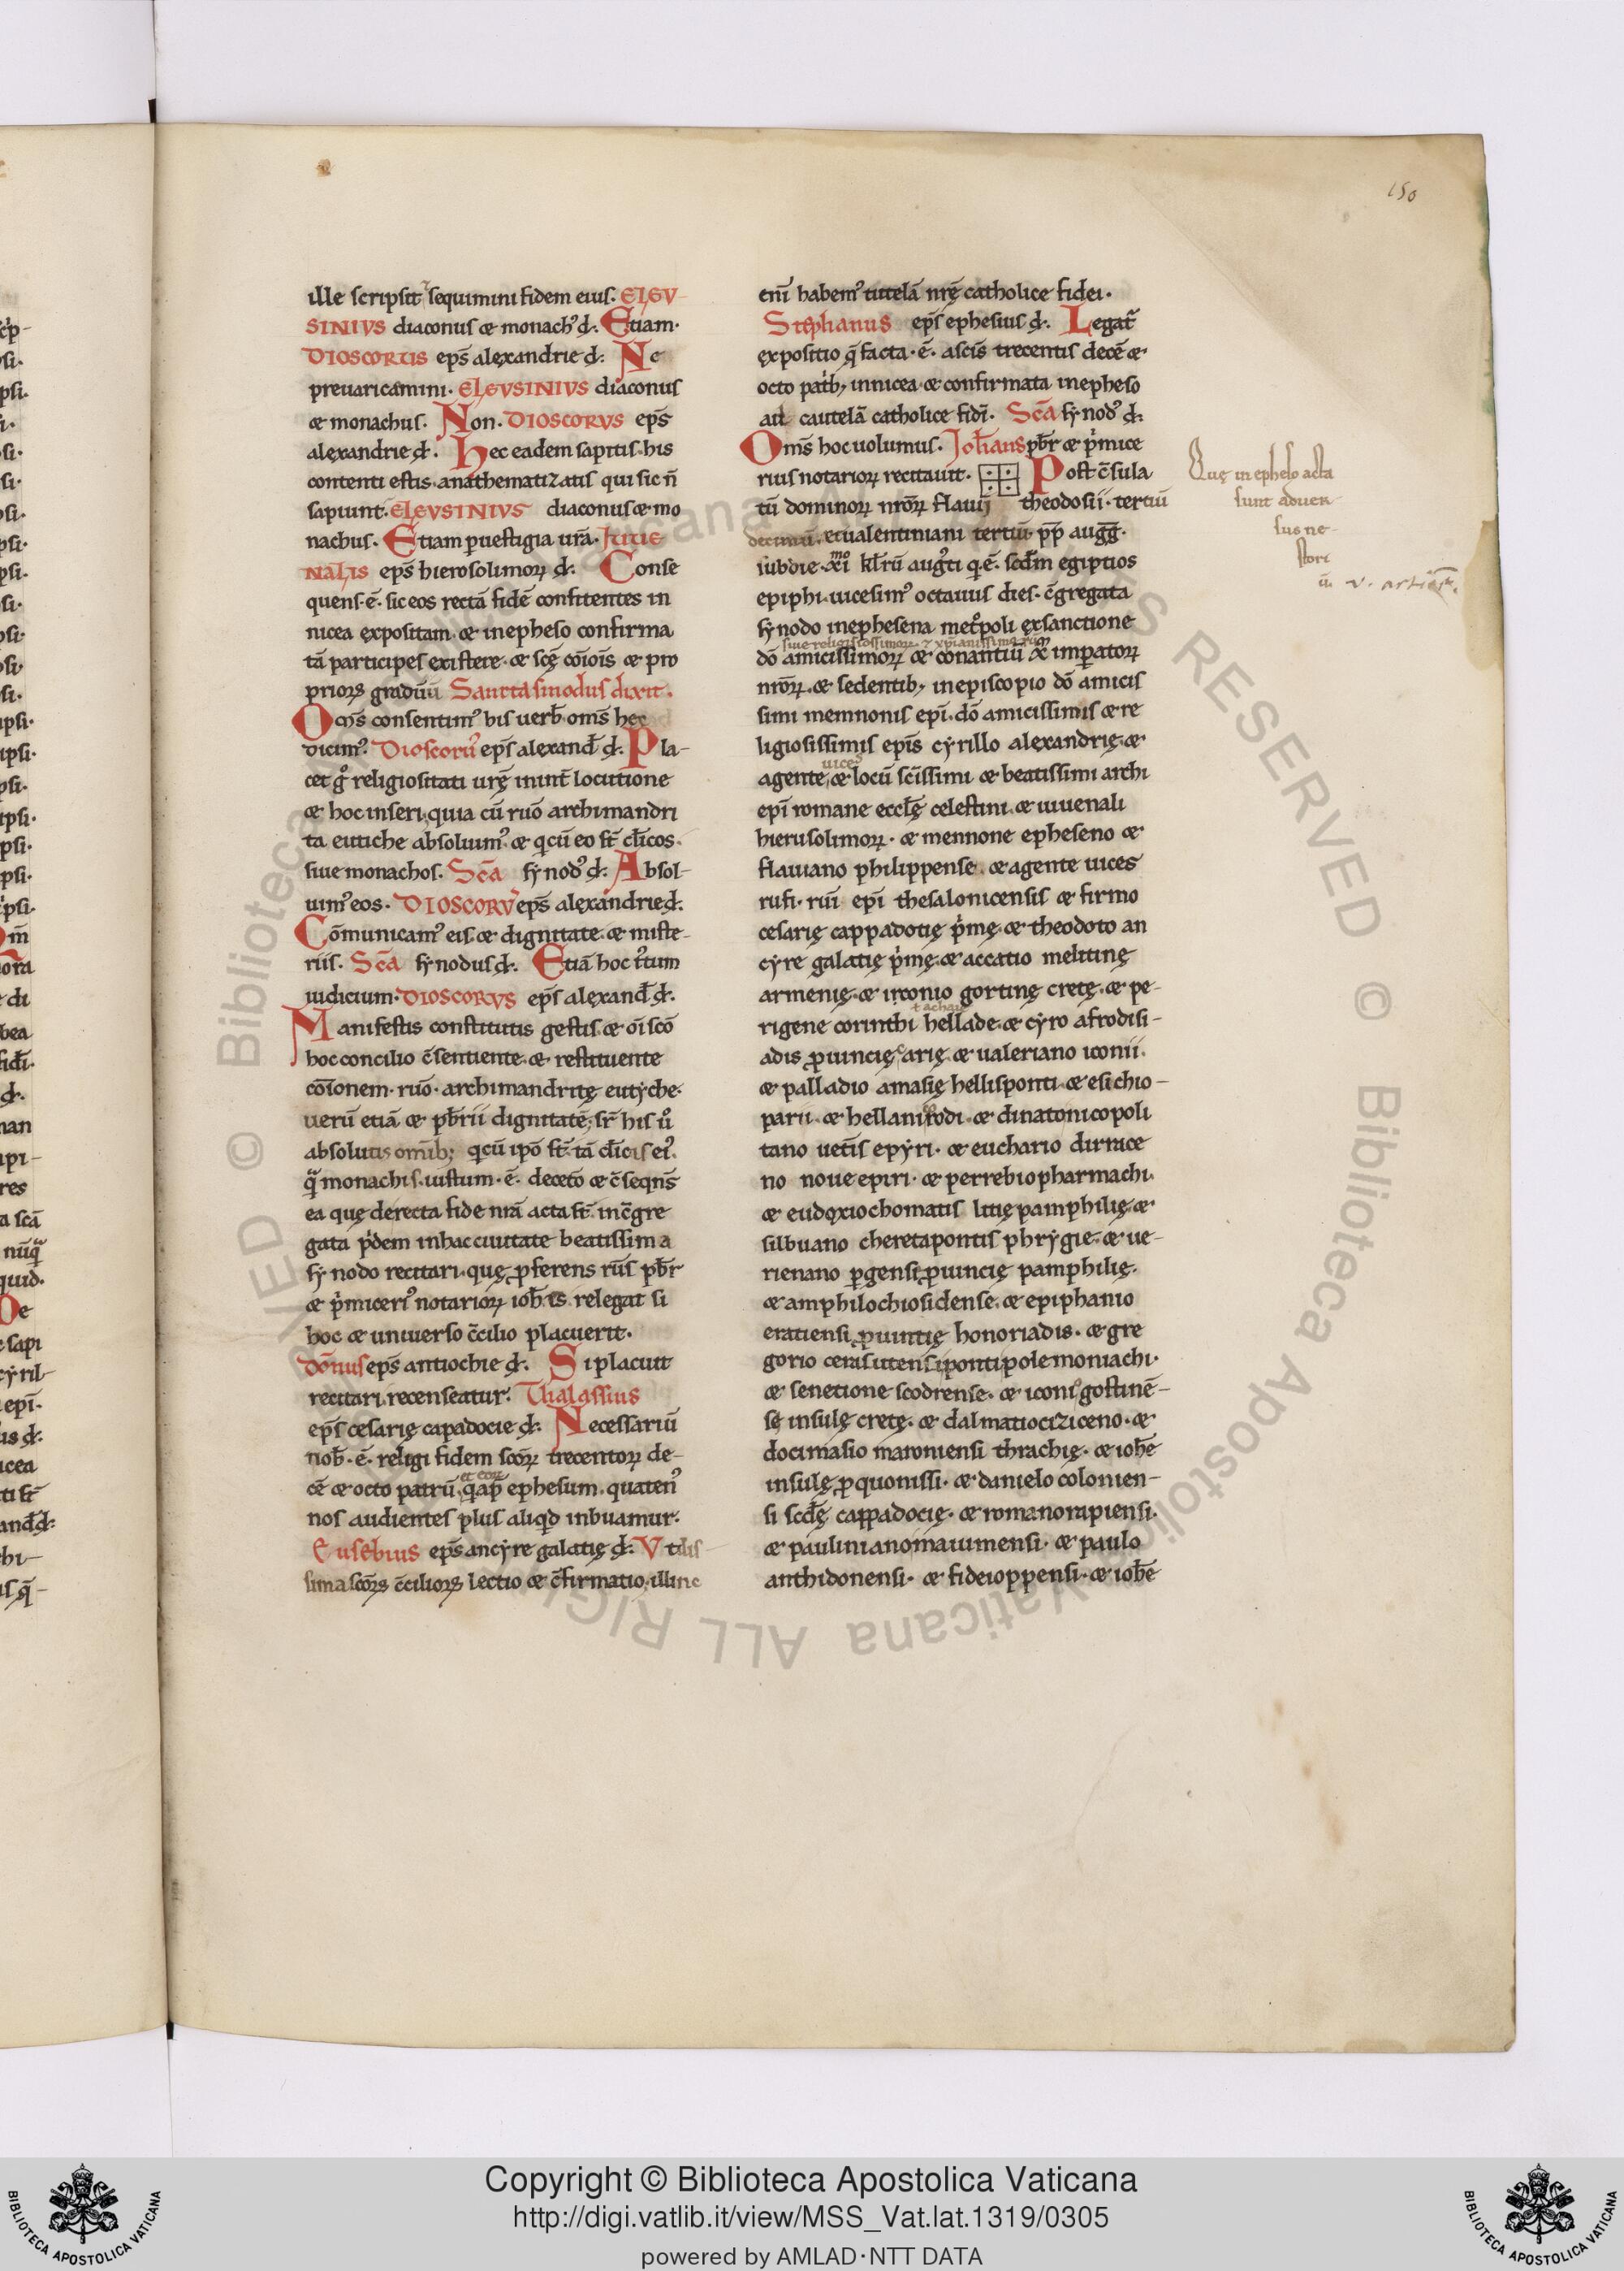 150
ille scripsit ⁊ sequimini fidem eius. ELEV-
SINIVS diaconus & monachꝰ đ. Etiam.
DIOSCORUS ep̄s alexandrie đ: Ne
preuaricamini. ELEVSINIVS diaconus
& monachus. Non. DIOSCORVS ep̄s
alexandrie đ. Hec eadem sapitis. his
contenti estis. anathematizatis qui sic n̄
sapiunt. ELEVSINIVS diaconus & mo
nachus. Etiam ꝑ uestigia ur̄a. IUUE
NALIS ep̄s hierosolimoꝝ đ. Conse
quens .ē. sic eos rectā fidē confitentes in
nicea expositam. & in epheso confirma
tā participes existere. & scę̄ cōiōis & pro
prioꝝ graduū Sancta sinodus dixit.
Om̄s consentimꝰ his uerb̄ om̄s hec
dicimꝰ. Dioscorꝰ ep̄s alexand̄ đ. Pla-
cet gͦ religiositati urę̄ in int̄locutione
& hoc inseri. quia cū ruō archimandri
ta eutiche absoluimꝰ. & q̇ cū eo st̄ cl̄icos.
siue monachos. Scā synodꝰ đ. Absol-
uimꝰ eos. DIOSCORVꝰ ep̄s alexandrie đ.
Cōmunicamꝰ eis. & dignitate. & miste-
riis. Scā synodus đ. Etiā hoc ir̄tum
iudicium. DIOSCORVS ep̄s alexand̄ đ.
Manifestis constitutis gestis. & oī scō
hoc concilio c̄sentiente. & restituente
cōionem. ruō. archimandritę eutyche.
uerū etiā & pb̄rii dignitatē. sr̄ his ůͦ
absolutis omīb; q̇ cū ipō st̄. tā cl̄icis eiꝰ.
q̄̃ monachis. iustum .ē. decetō & c̄seqn̄s
ea quę de recta fide nr̄a acta st̄. in c̄gre
gata p̓dem in hac ciuitate beatissima
synodo recitari. quę ꝓferens rūs pb̄r
& p̓miceriꝰ notarioꝝ ioh̄is relegat si
hoc & uniuerso c̄cilio placuerit.
dōnus ep̄s antiochie đ. Si placuit
recitari. recenseatur. Thalassius
ep̄s cesarię capadocie đ. Necessariū
nob̄ .ē. relegi fidem scōꝝ trecentoꝝ de-
cē & octo patrū. et eoꝝ q̇ ap̄ ephesum. quatenꝰ
nos audientes plus aliqd̓ inbuamur.
Eusebius ep̄s ancyre galatię đ. Vtilis-
sima scōꝝ c̄cilioꝝ lectio & c̄firmatio. illinc
eni̅ habemꝰ tutelā nrę̄ catholice fidei.
Stephanus ep̄s ephesius đ. Legat᷑
expositio q̄ facta .ē. a scīs trecentis decē &
octo patb̓; in nicea. & confirmata in epheso
ad cautelā catholice fidī. Scā synodꝰ đ.
Om̄s hoc uolumus. Joh̄ans pb̄r & p̓mice
rius notarioꝝ recitauit. Post c̄sula
tū dominoꝝ nr̄oꝝ flauij theodosii. tertiū
decimū. et ualentiniani tertiū. pp̄ augḡ.
sub die. xiᵐᵒ kl̄rū augͥti q̇ .ē. scd̄m egiptios
epiphi. uicesimꝰ octauus dies. c̄gregata
synodo in ephesena metͦpoli ex sanctione
siue religiosissimoꝝ ⁊ xp̄ianissimoꝝ
dō amicissimoꝝ & conantiū & imꝑatoꝝ
nr̄oꝝ. & sedentib; in episcopio dō amicis
simi memnonis epī. dō amicissimis & re
ligiosissimis epīs cyrillo alexandrię. &
agente uices & locū sc̄issimi & beatissimi archi
epī romane eccl̄ę celestini. & iuuenali
hierusolimoꝝ. & mennone epheseno &
flauiano philippense. & agente uices
rufi. rūi epī thesalonicensis & firmo
cesarię cappadotię p̓mę. & theodoto an
cyre galatię p̓mę. & accatio melitinę
armenię. & irconio gortinę cretę. & pe-
rigene corinthi hellade. & cyro afrodisi-
ł achaie
adis ꝓuincię carię. & ualeriano iconii.
& palladio amasię hellisponti. & esichio-
parii. & hellanirodi. & dinatonicopoli
tano uet̄is epyri. & euchario dirrace
no noue epiri. & perrebio pharmachi.
& eudoxio chomatis litię pamphilię. &
silbuano cheretapontis phrygie. & ue-
rienano ꝑgensi ꝓuincię pamphilię.
& amphilochio sidense. & epiphanio
eratiensi ꝓuintię honoriadis. & gre
gorio cerasutensi ponti polemoniachi.
& senetione scodrense. & iconiͦ gostinē-
sę insulę cretę. & dalmatio ciziceno. &
docimasio maroniensi thrachię. & ioh̄e
insulę ꝓquonissi. & danielo colonien-
si scd̄ę cappadocię. & romano rapiensi.
& pauliniano maiumensi. & paulo
anthidonensi. & fide ioppensi. & ioh̄e
Quę in epheso acta
sunt aduer-
sus ne-
stori
ū.
Copyright © Biblioteca Apostolica Vaticana
http://digi.vatlib.it/view/MSS_Vat.lat.1319/0305
powered by AMLAD·NTT DATA